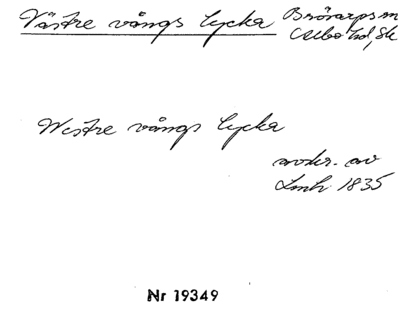 Västre vångs lycka Brösarps sn
Albo hd, Sk
Westre vångs lycka
avskr. av
Lmh 1835
Nr 19349